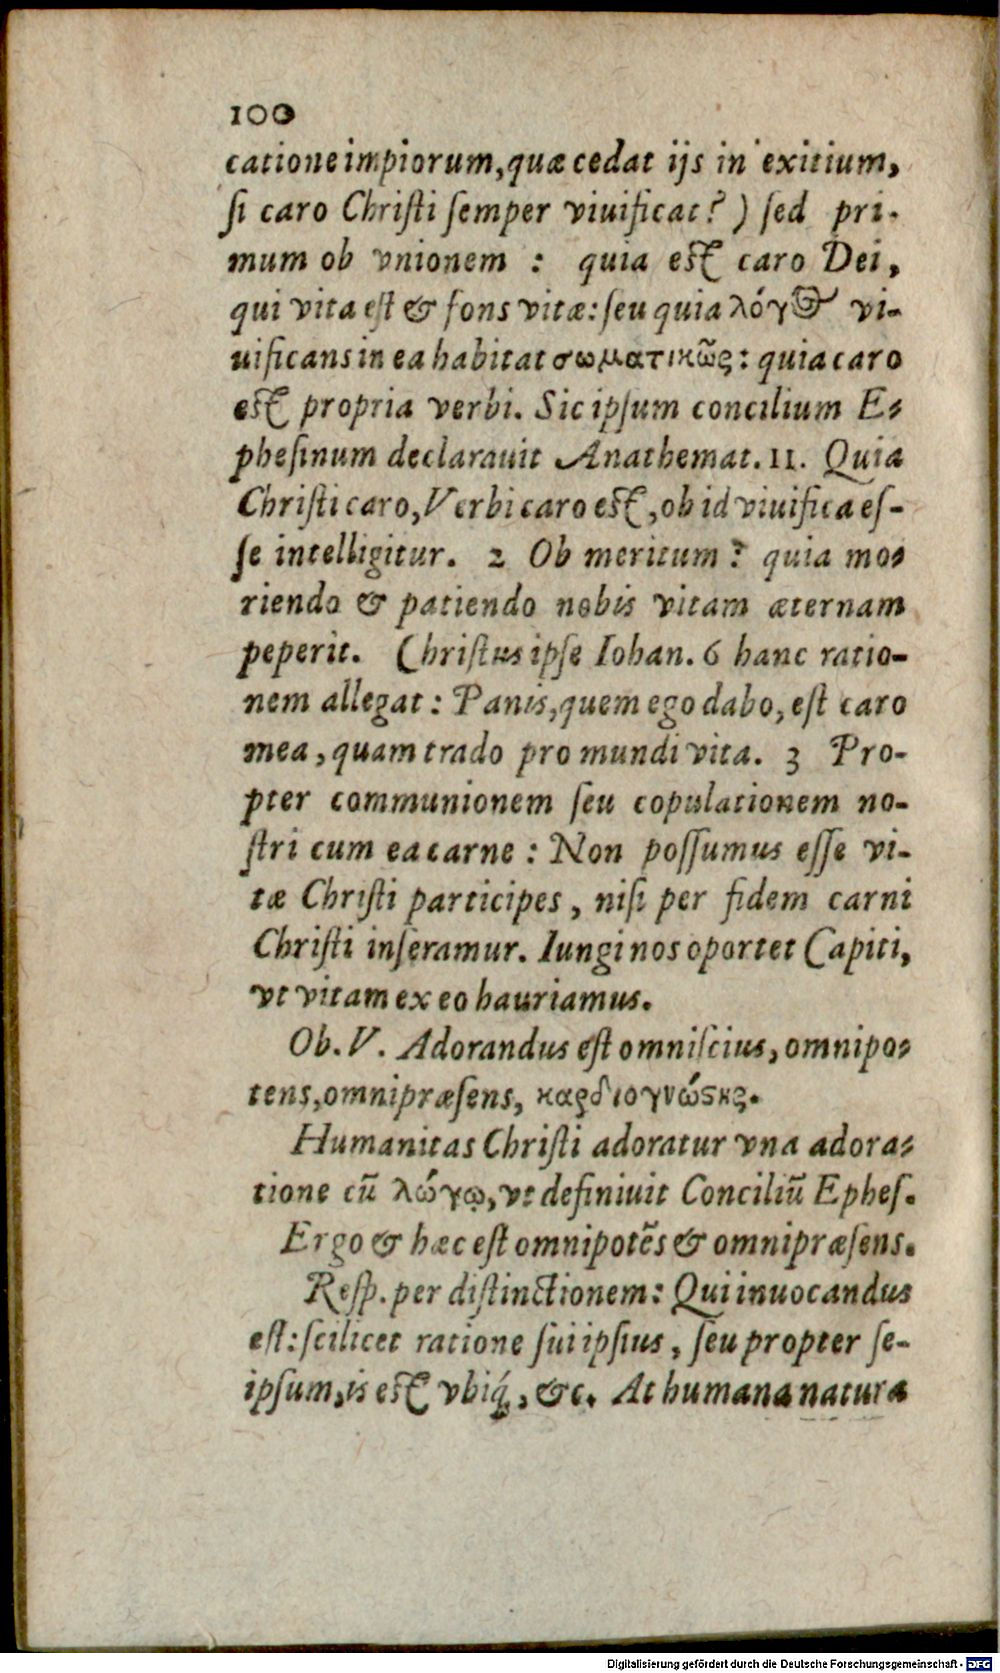 100
catione impiorum, quæ cedat ijs in exitium,
ſi caro Chriſti ſemper viuificat? ) ſed pri-
mum ob vnionem : quia eſt caro Dei,
qui vita eſt & fons vitæ: ſeu quia λόγος vi-
uificans in ea habitat σωματικῶς: quia caro
eſt propria verbi. Sic ipſum concilium E-
pheſinum declarauit Anathemat. 11. Quia
Chriſti caro, Verbi caro eſt, ob id viuifica eſ-
ſe intelligitur. 2 Ob meritum: quia mo-
riendo & patiendo nobis vitam æternam
peperit. Chriſtus ipſe Iohan. 6 hanc ratio-
nem allegat: Panis, quem ego dabo, eſt caro
mea, quam trado pro mundi vita. 3 Pro-
pter communionem ſeu copulationem no-
ſtri cum ea carne : Non poſſumus eſſe vi-
tæ Chriſti participes, niſi per fidem carni
Chriſti inſeramur. Iungi nos oportet Capiti,
vt vitam ex eo hauriamus.
Ob. V. Adorandus eſt omniſcius, omnipo-
tens, omnipræſens, καρδιογνώϛης.
Humanitas Chriſti adoratur vna adora-
tione cū λώγῳ, vt definiuit Conciliū Epheſ.
Ergo & hæc eſt omnipotēs & omnipræſens.
Reſp. per diſtinctionem: Qui inuocandus
eſt: ſcilicet ratione ſui ipſius, ſeu propter ſe-
ipſum, is eſt vbiq́;, &c. At humana natura
Digitalisierung gefördert durch die Deutsche Forschungsgemeinschaft - DFG